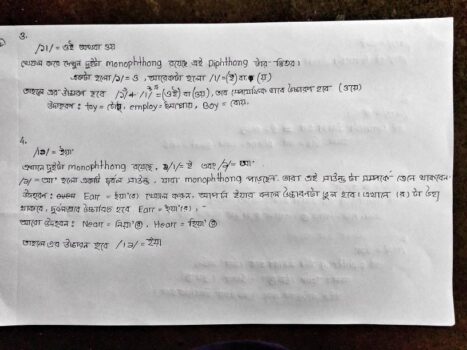 3.
/ɔɪ/ = ওই অথবা ওয়
খেয়াল করে দেখুন দুইটা monophthong রয়েছে এই Diphthong টার ভিতর।
একটা হলো /ɔ/ = ও, আরেকটা হলো /ɪ/ = (ই) বা (য়)
তাহলে এর উচ্চারণ হবে /ɔ/ + /ɪ/ = (ওই) বা (ওয়), তবে উচ্চারণ হবে (ওয়)
উদাহরণ: toy = টয়, employ = ইমপ্লয়, Boy = বয়.
4.
/ɪə/ = ইয়া
এখানে দুইটা monophthong রয়েছে, /ɪ/ = ই এবং /ə/ = আ
/ə/ = আ হলো একটি সাউন্ড, যারা monophthong পড়েছেন তারা এই সাউন্ড টা সম্পর্কে জেনে থাকবেন।
উদাহরণ: Ear = ইয়া(র) খেয়াল করুন, আপনি ইয়ার বললে উচ্চারণটা ভুল হবে। এখানে (র) টা উহ্য
থাকবে, উচ্চারিত হবে Ear = ইয়া(র),
আরো উদাহরণ: Near = নিয়া(র), Hear = হিয়া(র)
তাহলে এর উচ্চারণ হবে /ɪə/ = ইয়া